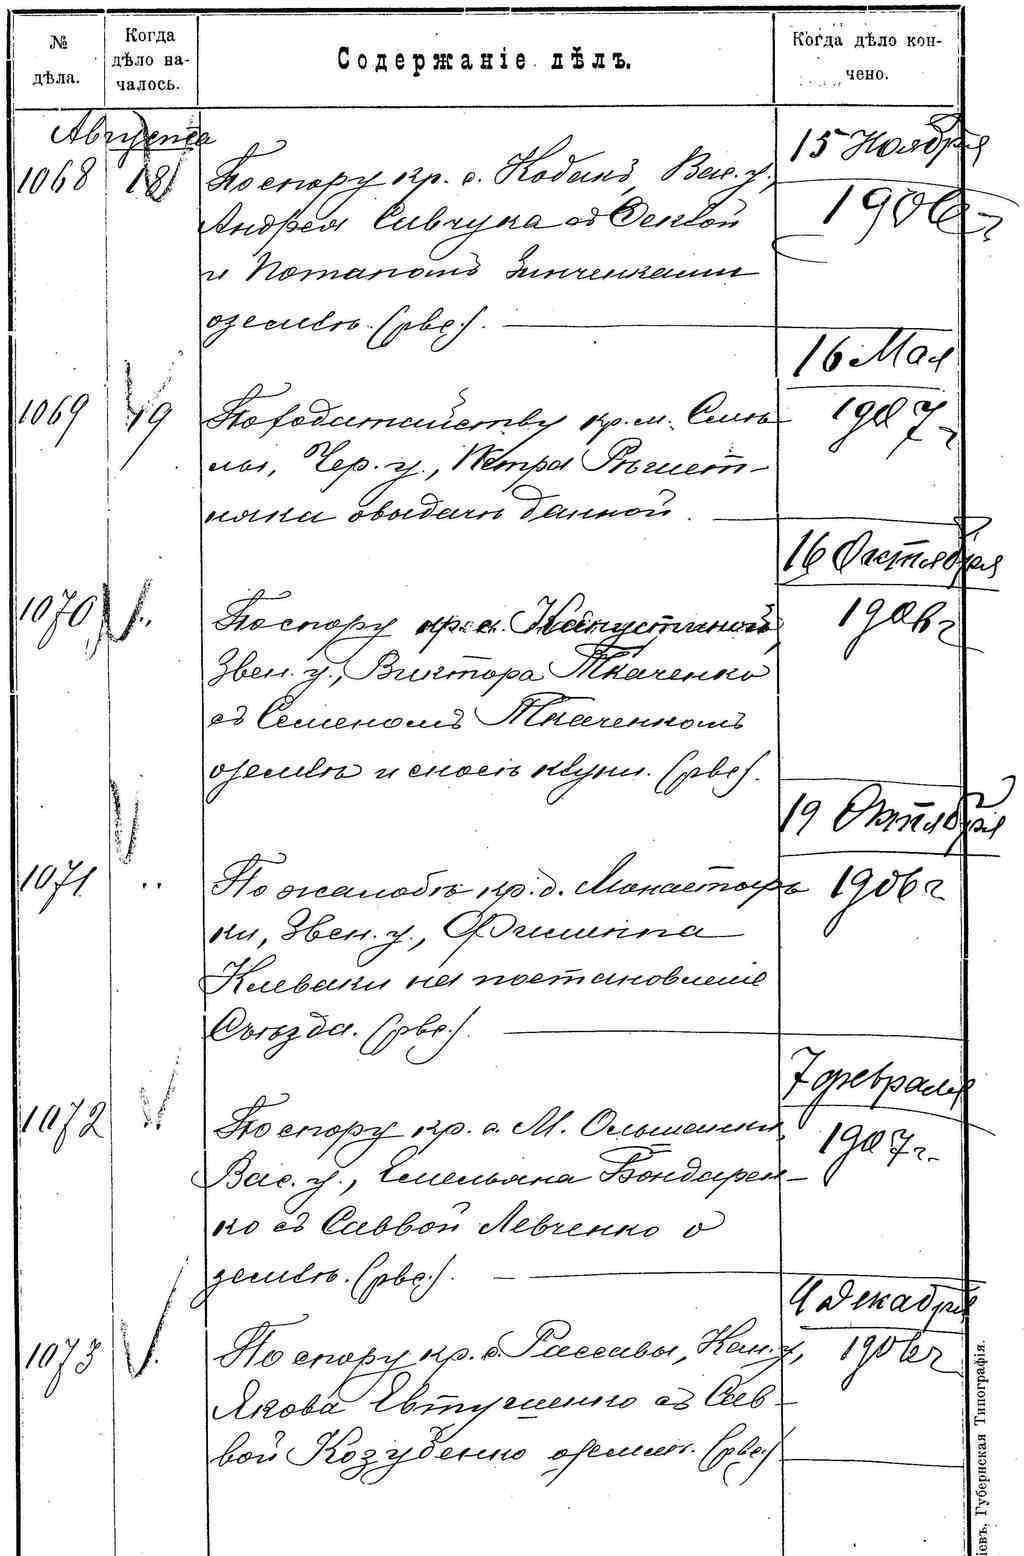 № дѣла.
Когда дѣло на-
чалось.
Содержаніе дѣлъ.
Когда дѣло кон-
чено.
Августа
1068 18 По спору кр. с. Кобакъ, Вас. у.,
Андрея Савчука съ
и Потапомъ Зинченками
о землѣ. (рвс.).
15 Ноября
1906 г
1069 19 По ходатайству кр. м. Смѣ-
лы, Чер. у., Петра Рѣшет-
няка о выдачѣ данной.
16 Мая
1907 г
1070 „ По спору кр. с. Капустиной,
Звен. у., Виктора Ткаченко
съ Семеномъ Ткаченкомъ
о землѣ и сносѣ клуни. (рвс.).
16 Октября
1906 г
1071 „ По жалобѣ кр. д. Монастыр-
ки, Звен. у., Филиппа
Клеваки на постановленіе
Съѣзда. (рвс.).
19 Октября
1906 г
1072 „ По спору кр. с. М. Ольшанки,
Вас. у., Емельяна Бондарен-
ко съ Саввой Левченко о
землѣ. (рвс.).
7 февраля
1907 г.
1073 „ По спору кр. с. Россавы, Кан. у.,
Якова Евтушенко съ Сав-
вой Козубенко о землѣ. (рвс.)
4 декабря
1906 г
іевъ, Губернская Типографія.